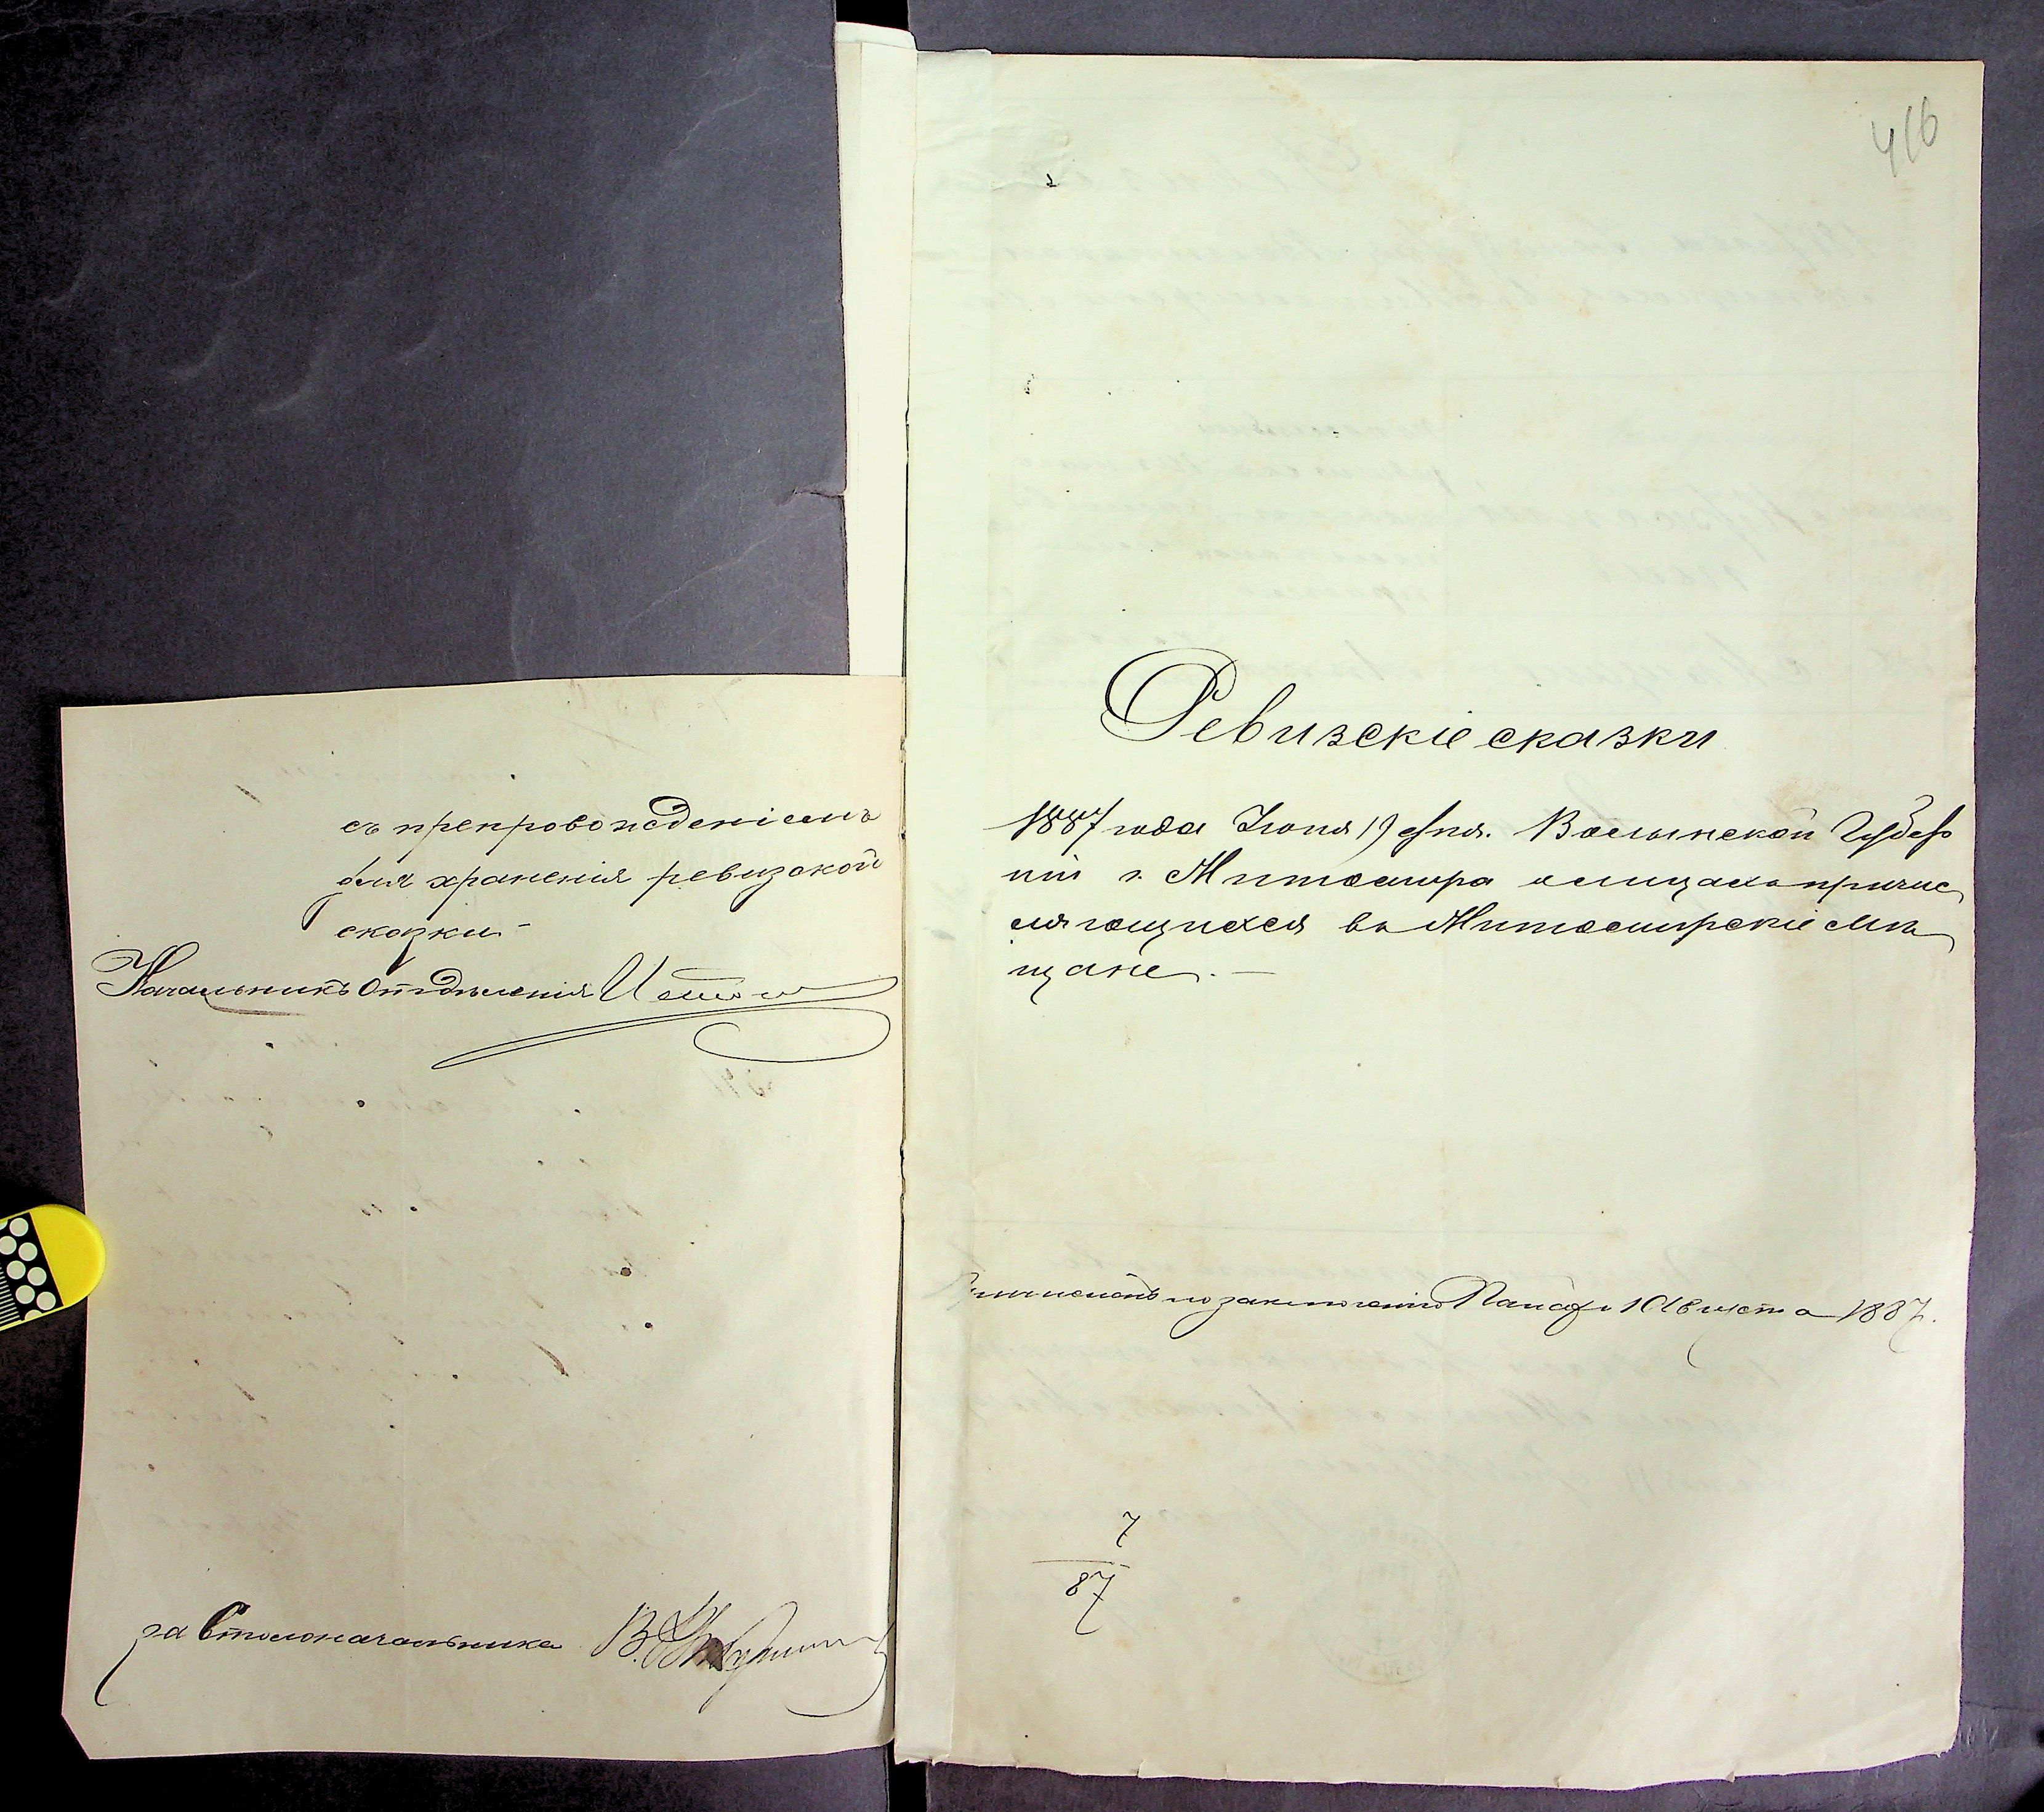 съ препровожденіемъ
для храненія ревизской
сказки.-
Начальникъ Отдѣленія
за Столоначальника В.
416
Ревизскіе сказки
1887 года Іюня 19 дня. Волынской Губер
ніи г. Житомира о лицахъ причис
ляющихся въ Житомирскіе мѣ
щане. —
по заключенію Палаты 10 Августа 1887.
7
87